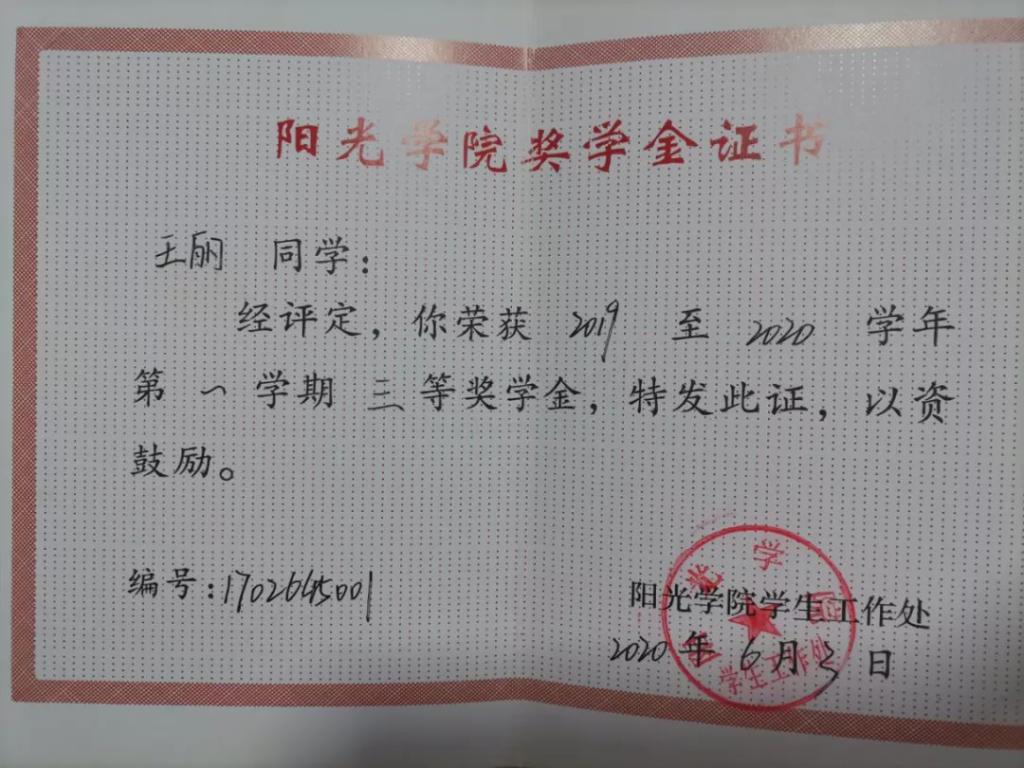 阳光学院奖学金证书
王丽 同学：
经评定，你荣获 2019 至 2020 学年
第 一 学期 三 等奖学金，特发此证，以资
鼓励。
编号：1702645001
阳光学院学生工作处
2020 年 6 月 3 日
阳光学院
学生工作处